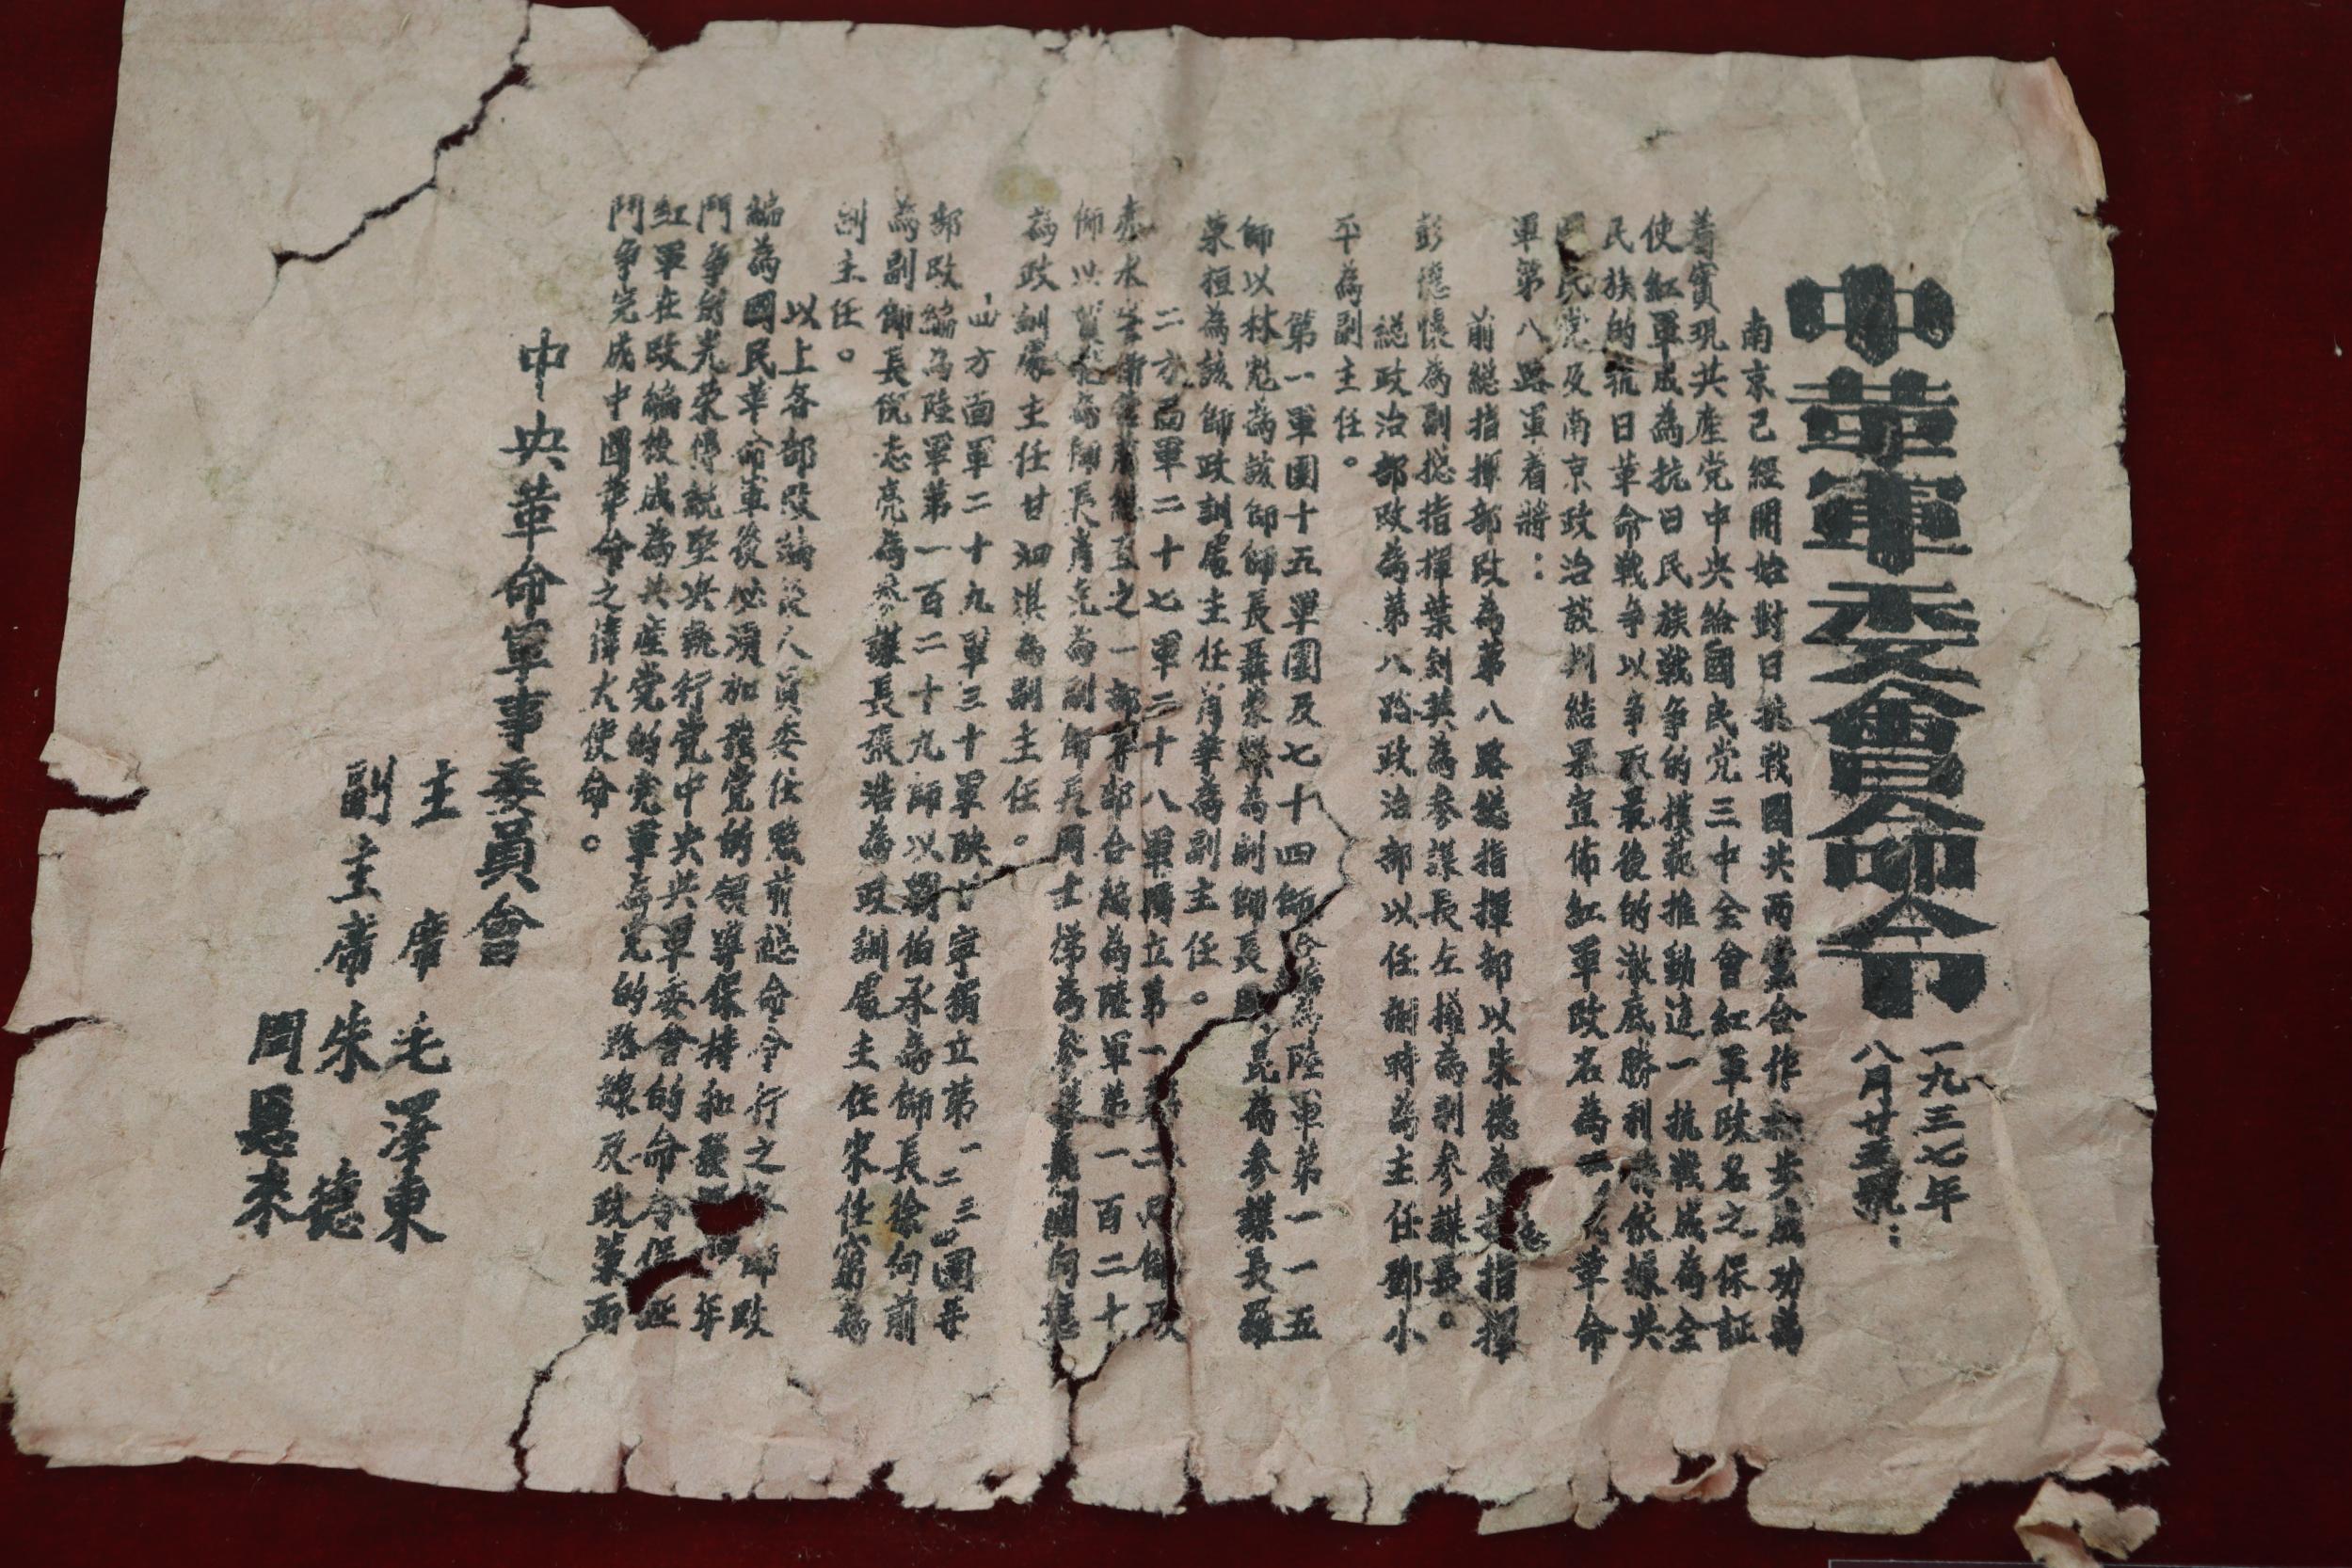 中華軍委會命令
一九三七年
八月廿五號：
南京已經開始對日抗戰國共两黨合作初步成功為
着實現共產党中央給國民党三中全會紅軍改名之保証
使紅軍成為抗日民族戰争的模范推動這一抗戰成為全
民族的抗日革命戰争以争取最後的澈底勝利特依據共
國民党及南京政治談判結果宣佈紅軍改名為革命
軍第八路軍着將：
前總指揮部改為第八路總指揮部以朱德為指揮
彭德懷為副總指揮葉剑英為参謀長左權為副参謀長。
総政治部改為第八路政治部以任弼時為主任鄧小
平為副主任。
第一軍團十五軍團及七十四師合編為陸軍第一一五
師以林彪為該師師長聶荣臻為副師長昆為参謀長羅
荣桓為該師政訓處主任肖華為副主任。
二方面軍二十七軍二十八軍獨立第一第二
赤水之一部等部合編為陸軍第一百二十
師以賀龙為師長肖克為副師長周士悌為参謀長關向應
為政訓處主任甘泗淇為副主任。
四方面軍二十九軍三十軍陝甘寧獨立第一二三四團等
部改編為陸軍第一百二十九師以劉伯承為師長徐向前
為副師長倪志亮為参謀長張浩為政訓處主任宋任窮為
副主任。
以上各部改編後人員委任照前總命令行之
編為國民革命軍後必須加強党的領導保持和發年
鬥争的光荣傳統堅决執行党中央共軍委會的命令保証
紅軍在改編後成為共產党的党軍為党的路線及政策而
鬥争完成中國革命之偉大使命。
中央革命軍事委員會
主席毛澤東
副主席朱德
周恩来